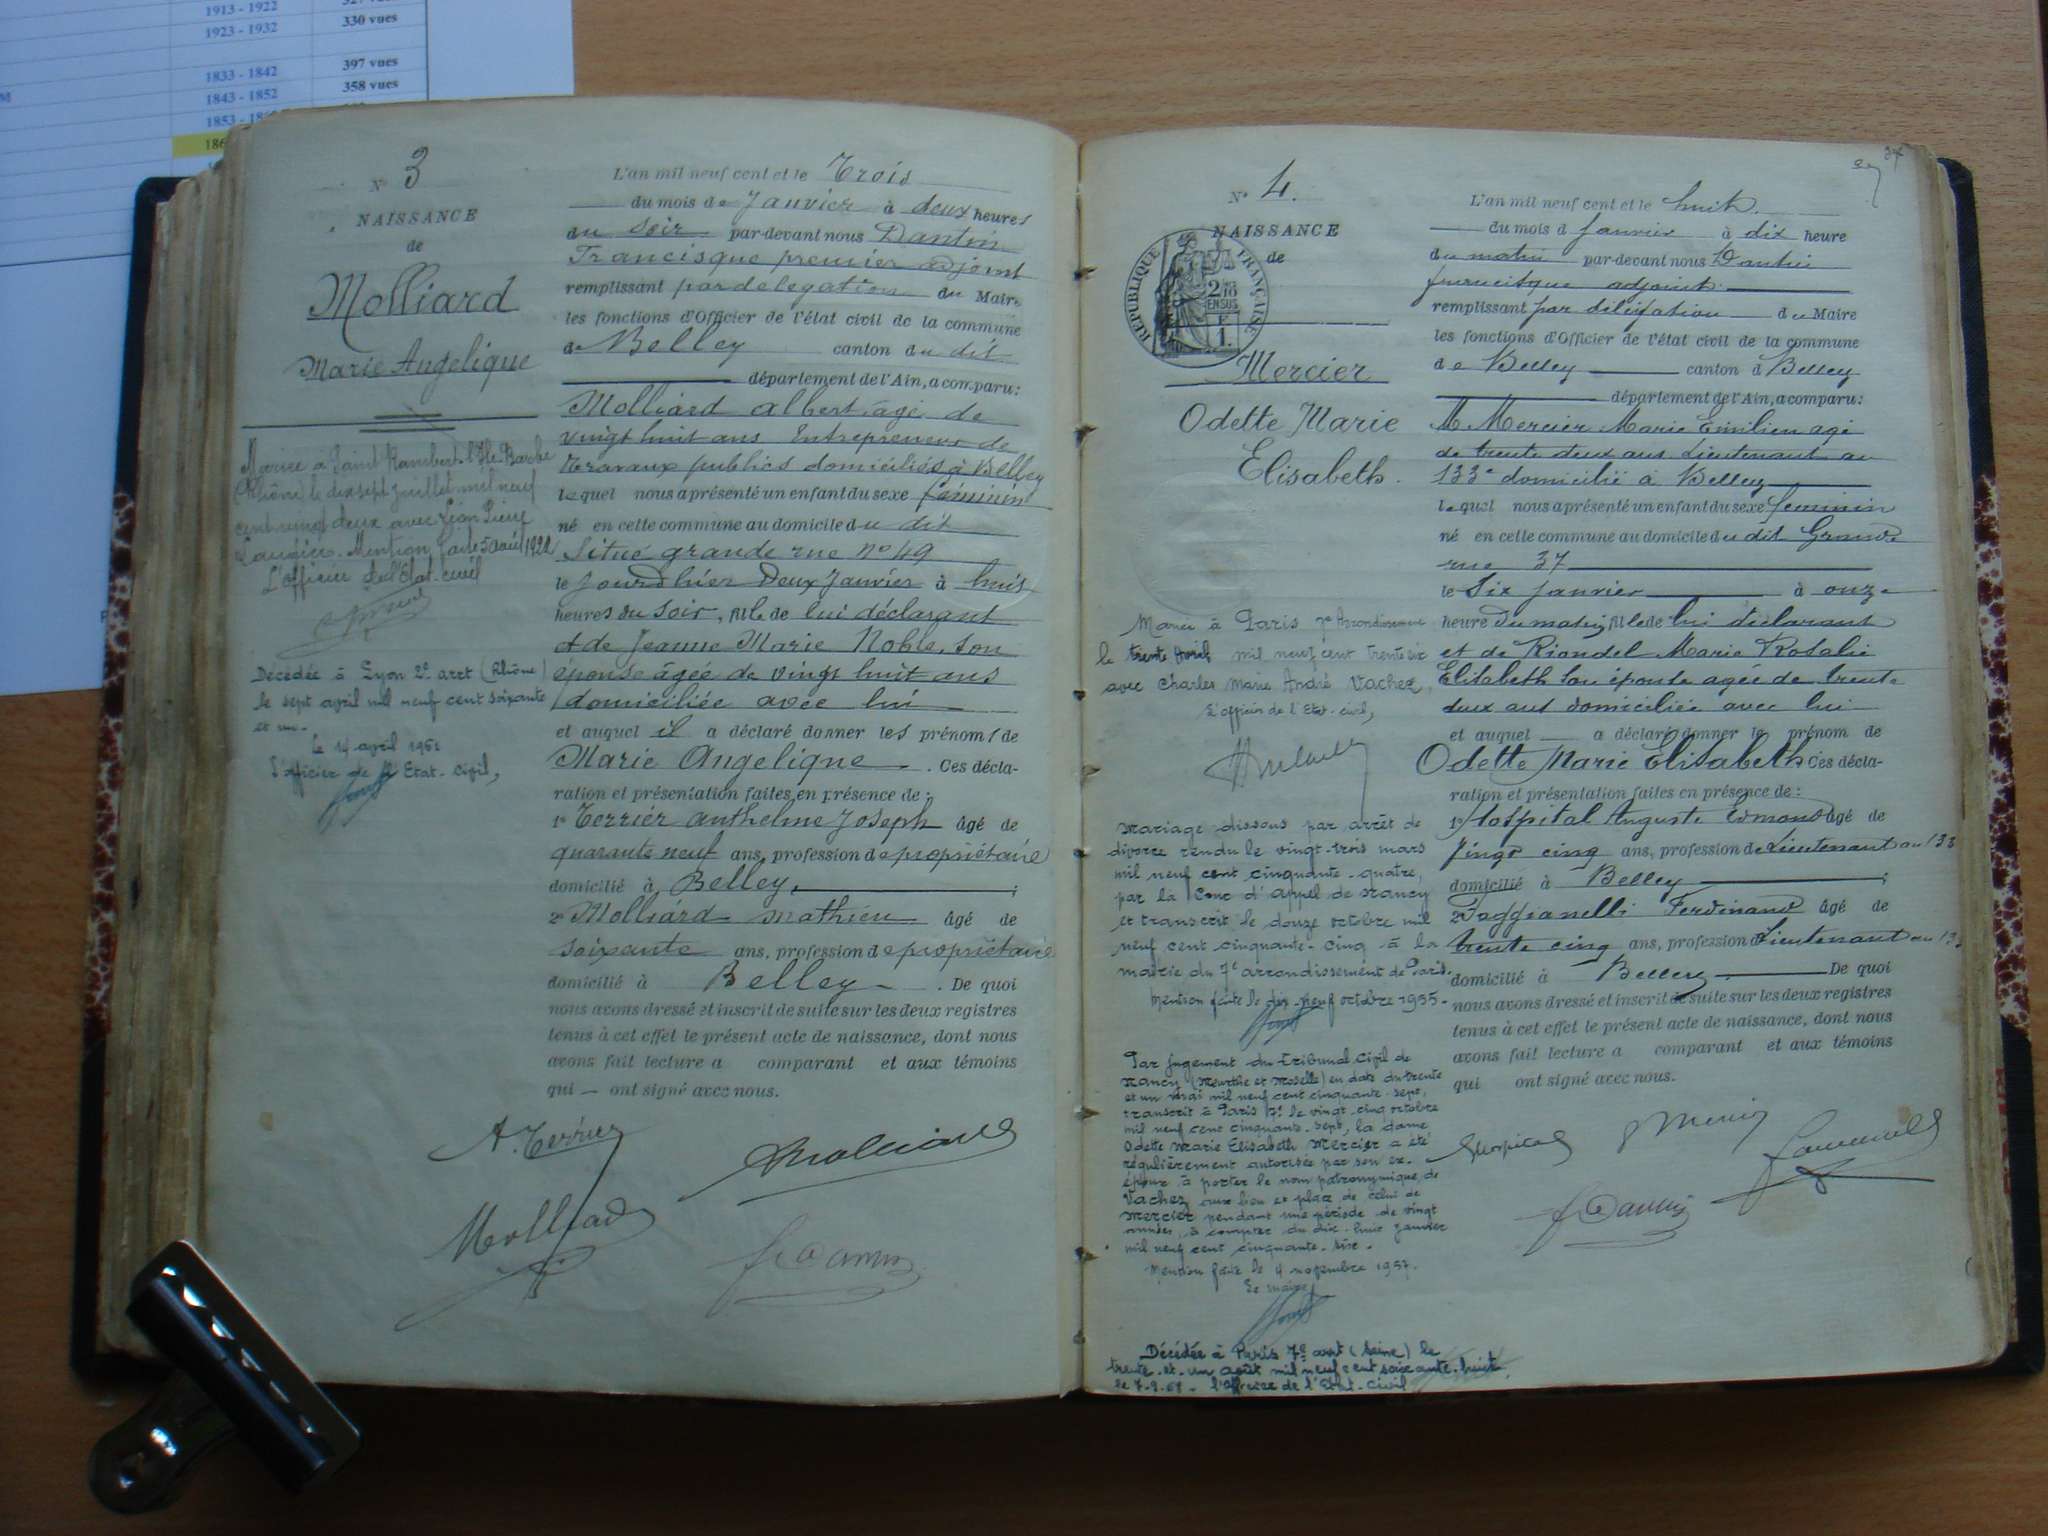 1913 - 1922
1923 - 1932 330 vues
1833 - 1842 397 vues
1843 - 1852 358 vues
N° 3
NAISSANCE
de
Molliard
Marie Angelique
Mariée à Saint Rambert-l'Ile-Barbe
(Rhône) le dix sept juillet mil neuf
cent vingt deux avec Léon Pierre
Mention faite 5 août 1922
L'officier de l'Etat-civil
Décédée à Lyon 2e arrt (Rhône)
le sept avril mil neuf cent soixante
et un.
Le 14 avril 1961
l'officier de l'Etat-Civil,
L'an mil neuf cent et le Trois
du mois de Janvier à deux heures
du soir par-devant nous Dantin
Francisque premier adjoint
remplissant par delegation du Maire
les fonctions d'Officier de l'état civil de la commune
de Belley canton du dit
département de l'Ain, a comparu:
Molliard albert agé de
vingt huit ans Entrepreneur de
Travaux publics domiciliés à Belley
lequel nous a présenté un enfant du sexe féminin
né en cette commune au domicile du dit
Situé grande rue n° 49
le jourdhier Deux Janvier à huit
heures du soir, fille de lui déclarant
et de Jeanne Marie Noble, son
épouse âgée de vingt huit ans
domiciliée avec lui
et auquel il a déclaré donner les prénoms de
Marie Angelique. Ces décla-
ration et présentation faites en présence de :
1° Terrier anthelme Joseph âgé de
quarante neuf ans, profession de propriétaire
domicilié à Belley, ;
2° Molliard mathieu âgé de
soixante ans, profession de propriétaire
domicilié à Belley. De quoi
nous avons dressé et inscrit de suite sur les deux registres
tenus à cet effet le présent acte de naissance, dont nous
avons fait lecture a comparant et aux témoins
qui — ont signé avec nous.
A. Terrier
Molliard
N° 4.
NAISSANCE
de
RÉPUBLIQUE FRANÇAISE
Mercier
Odette Marie
Elisabeth.
Mariée à Paris 7e Arrondissement
le trente avril mil neuf cent trente six
avec Charles Marie André Vachez,
L'officier de l'Etat-civil,
Mariage dissous par arrêt de
divorce rendu le vingt-trois mars
mil neuf cent cinquante-quatre,
par la Cour d'appel de Nancy
et transcrit le douze octobre mil
neuf cent cinquante-cinq à la
mairie du 7e arrondissement de Paris.
Mention faite le dix-neuf octobre 1955.
Par jugement du Tribunal Civil de
Nancy (Meurthe et Moselle) en date du trente
et un mai mil neuf cent cinquante-sept,
transcrit à Paris 7e le vingt-cinq octobre
mil neuf cent cinquante-sept, la dame
Odette Marie Elisabeth Mercier a été
régulièrement autorisée par son ex-
époux à porter le nom patronymique de
Vachez aux lieu et place de celui de
Mercier pendant une période de vingt
années, à compter du dix-huit janvier
mil neuf cent cinquante-six.
Mention faite le 4 novembre 1957.
Le maire,
Décédée à Paris 7e arrt (Seine) le
trente-et-un août mil neuf cent soixante-huit.
le 7-9-68 - l'Officier de l'Etat-Civil
L'an mil neuf cent et le huit
du mois d Janvier à dix heure
du matin par-devant nous Dantin
adjoint
remplissant par délégation du Maire
les fonctions d'Officier de l'état civil de la commune
de Belley canton d Belley
département de l'Ain, a comparu:
M Mercier Marie Emilien agé
de trente deux ans Lieutenant au
133e domicilié à Belley
lequel nous a présenté un enfant du sexe feminin
né en cette commune au domicile du dit Grande
rue 37
le Six janvier à onze
heure du matin, fille de lui déclarant
et de Riondel Marie Rosalie
Elisabeth son épouse agée de trente
deux ans domiciliée avec lui
et auquel a déclaré donner le prénom de
Odette Marie Elisabeth Ces décla-
ration et présentation faites en présence de :
1° Hospital Auguste Edmond âgé de
cinq ans, profession de Lieutenant au 133
domicilié à Belley ;
2° Ferdinand âgé de
trente cinq ans, profession de Lieutenant au
domicilié à Belley. De quoi
nous avons dressé et inscrit de suite sur les deux registres
tenus à cet effet le présent acte de naissance, dont nous
avons fait lecture a comparant et aux témoins
qui ont signé avec nous.